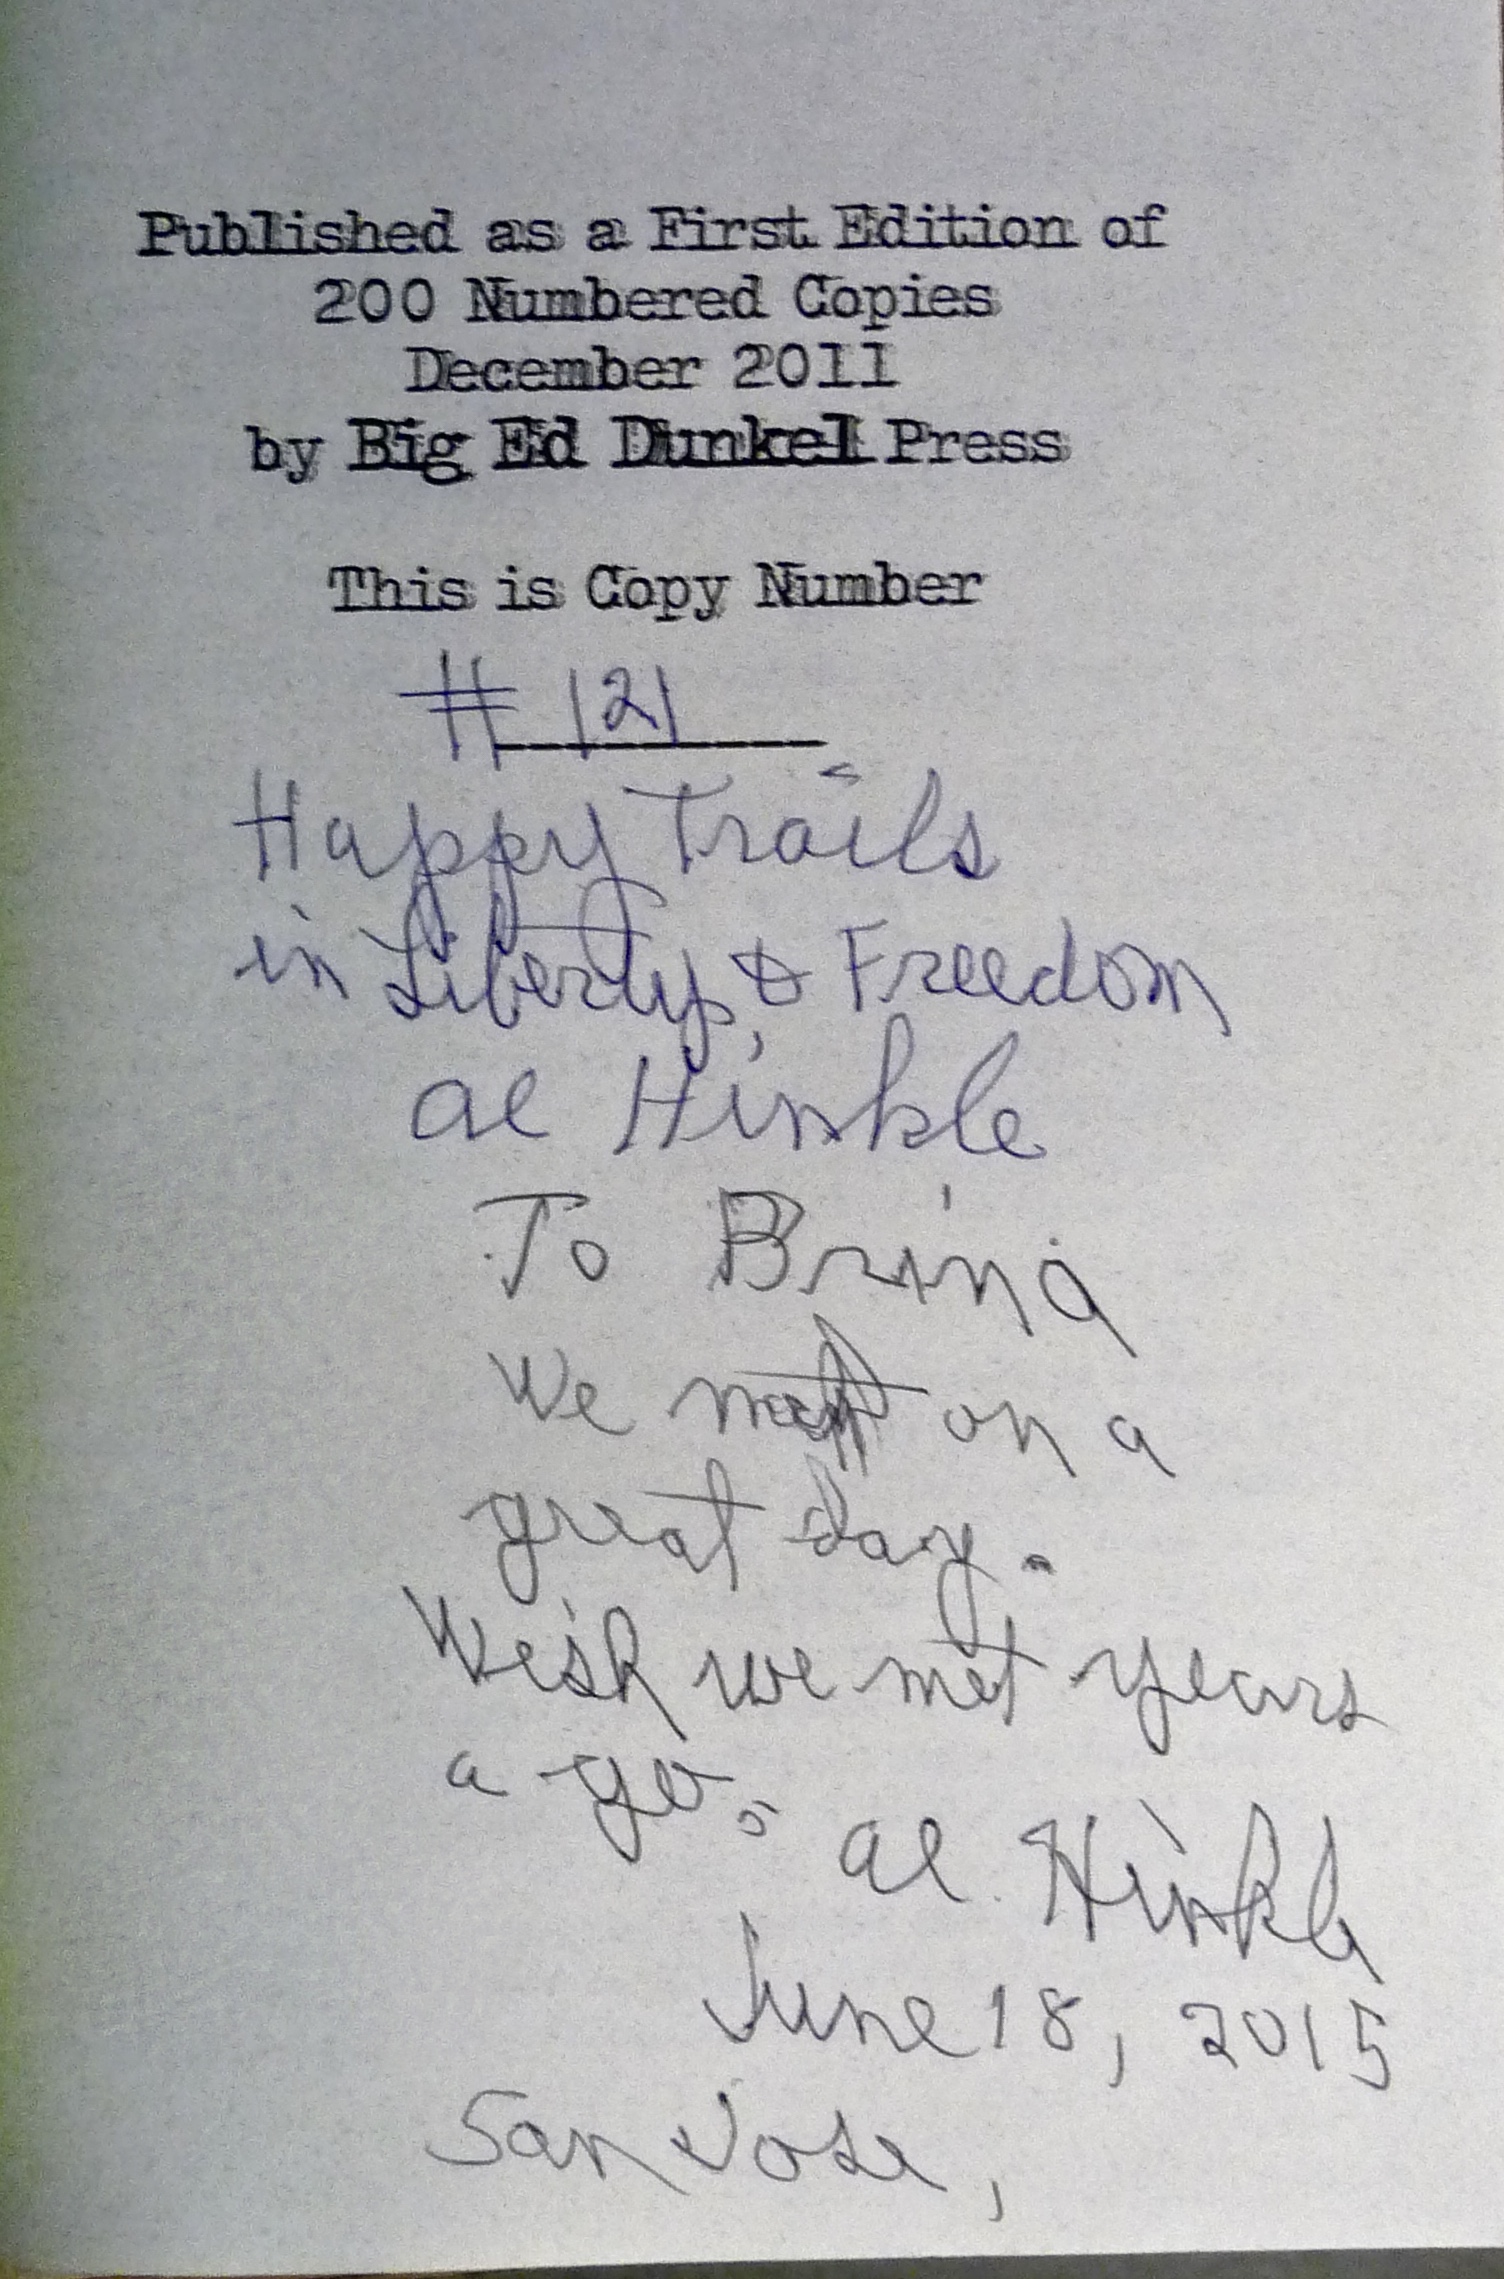 Published as a First Edition of
200 Numbered Copies
December 2011
by Big Ed Dunkel Press
This is Copy Number
# 121
Happy Trails
in Liberty & Freedom
Al Hinkle
To Brina
We met on a
great day.
Wish we met years
a go.
Al Hinkle
June 18, 2015
San Jose,